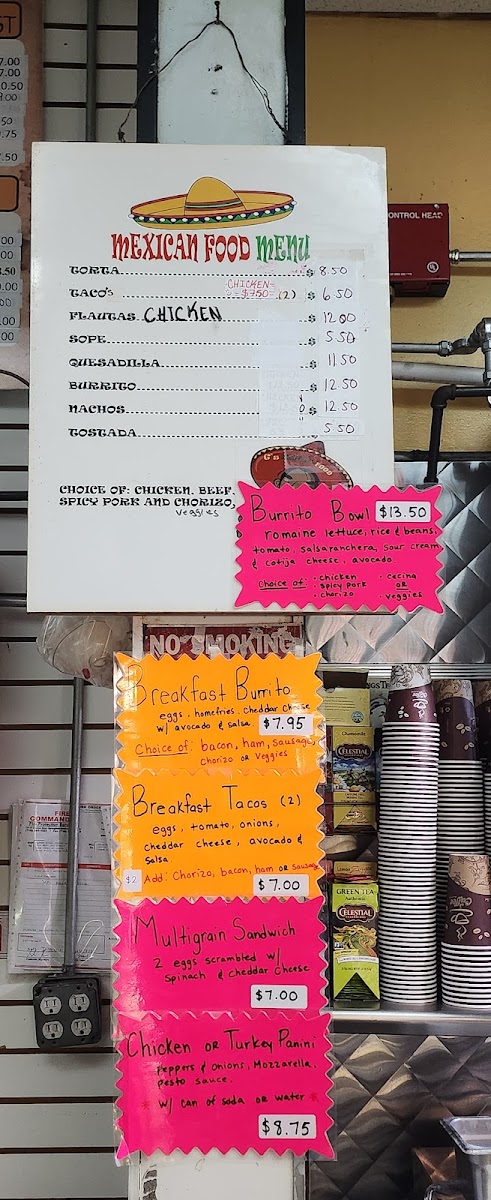 ST
7.00
7.00
0.50
8.00
.50
.75
7.50
.00
.00
8.50
.00
.00
.00
CONTROL HEAD
MEXICAN FOOD MENU
TORTA $ 8.50
CHICKEN
TACO'S = $7.50 = (2) $ 6.50
FLAUTAS CHICKEN $ 12.00
SOPE $ 5.50
QUESADILLA $ 11.50
BURRITO $ 12.50
NACHOS $ 12.50
TOSTADA 5.50
CHOICE OF: CHICKEN, BEEF,
SPICY PORK AND CHORIZO,
Veggies
G'S FOOD
Burrito Bowl $13.50
romaine lettuce, rice & beans,
tomato, salsa ranchera, sour cream
& cotija cheese, avocado.
Choice of: • chicken • cecina
• spicy pork OR
• chorizo • veggies
NO SMOKING
Breakfast Burrito
eggs, homefries, cheddar cheese
w/ avocado & salsa $7.95
Choice of: bacon, ham, sausage,
chorizo OR Veggies
Breakfast Tacos (2)
eggs, tomato, onions,
cheddar cheese, avocado &
salsa
$2 Add: Chorizo, bacon, ham OR sausage
$7.00
Multigrain Sandwich
2 eggs scrambled w/
spinach & cheddar cheese
$7.00
Chicken OR Turkey Panini
peppers & onions, Mozzarella,
pesto sauce.
* w/ can of soda or water *
$8.75
FIRE
COMMA
Chamomile
CELESTIAL
GREEN TEA
Authentic
CELESTIAL